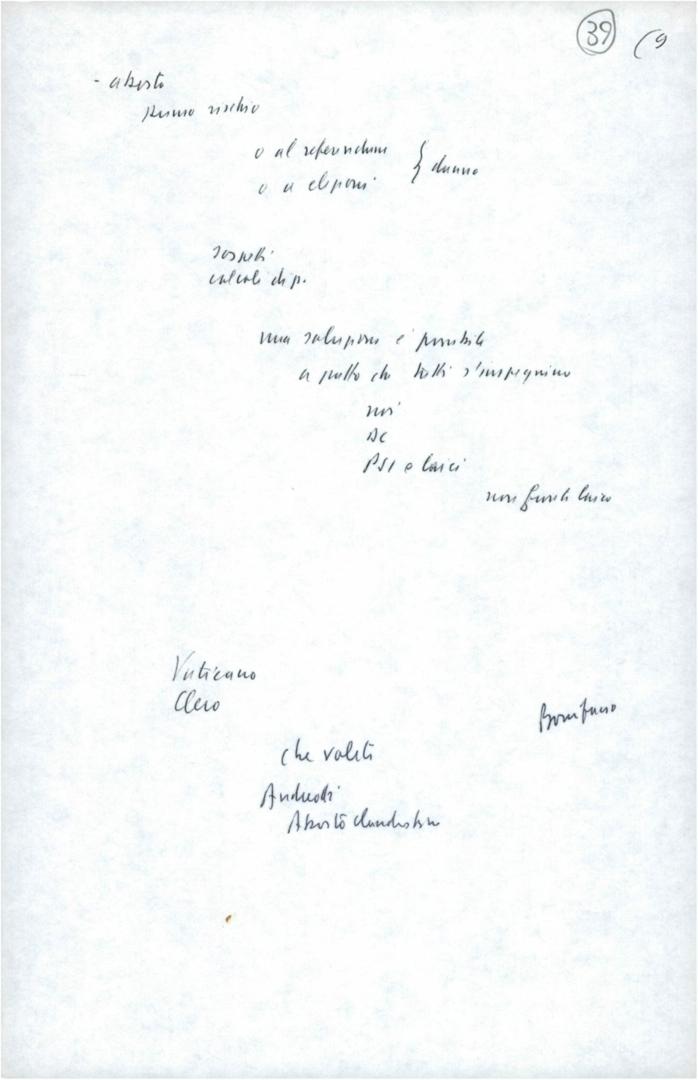 39 (9
- aborto
rischio
o al referendum } danno
o a elezioni
sospetti
calcoli di p.
una soluzione è possibile
a patto che tutti s'impegnino
noi
DC
PSI e laici
non fronte laico
Vaticano
Clero
Bonifacio
che volete
Andreotti
Aborto clandestino